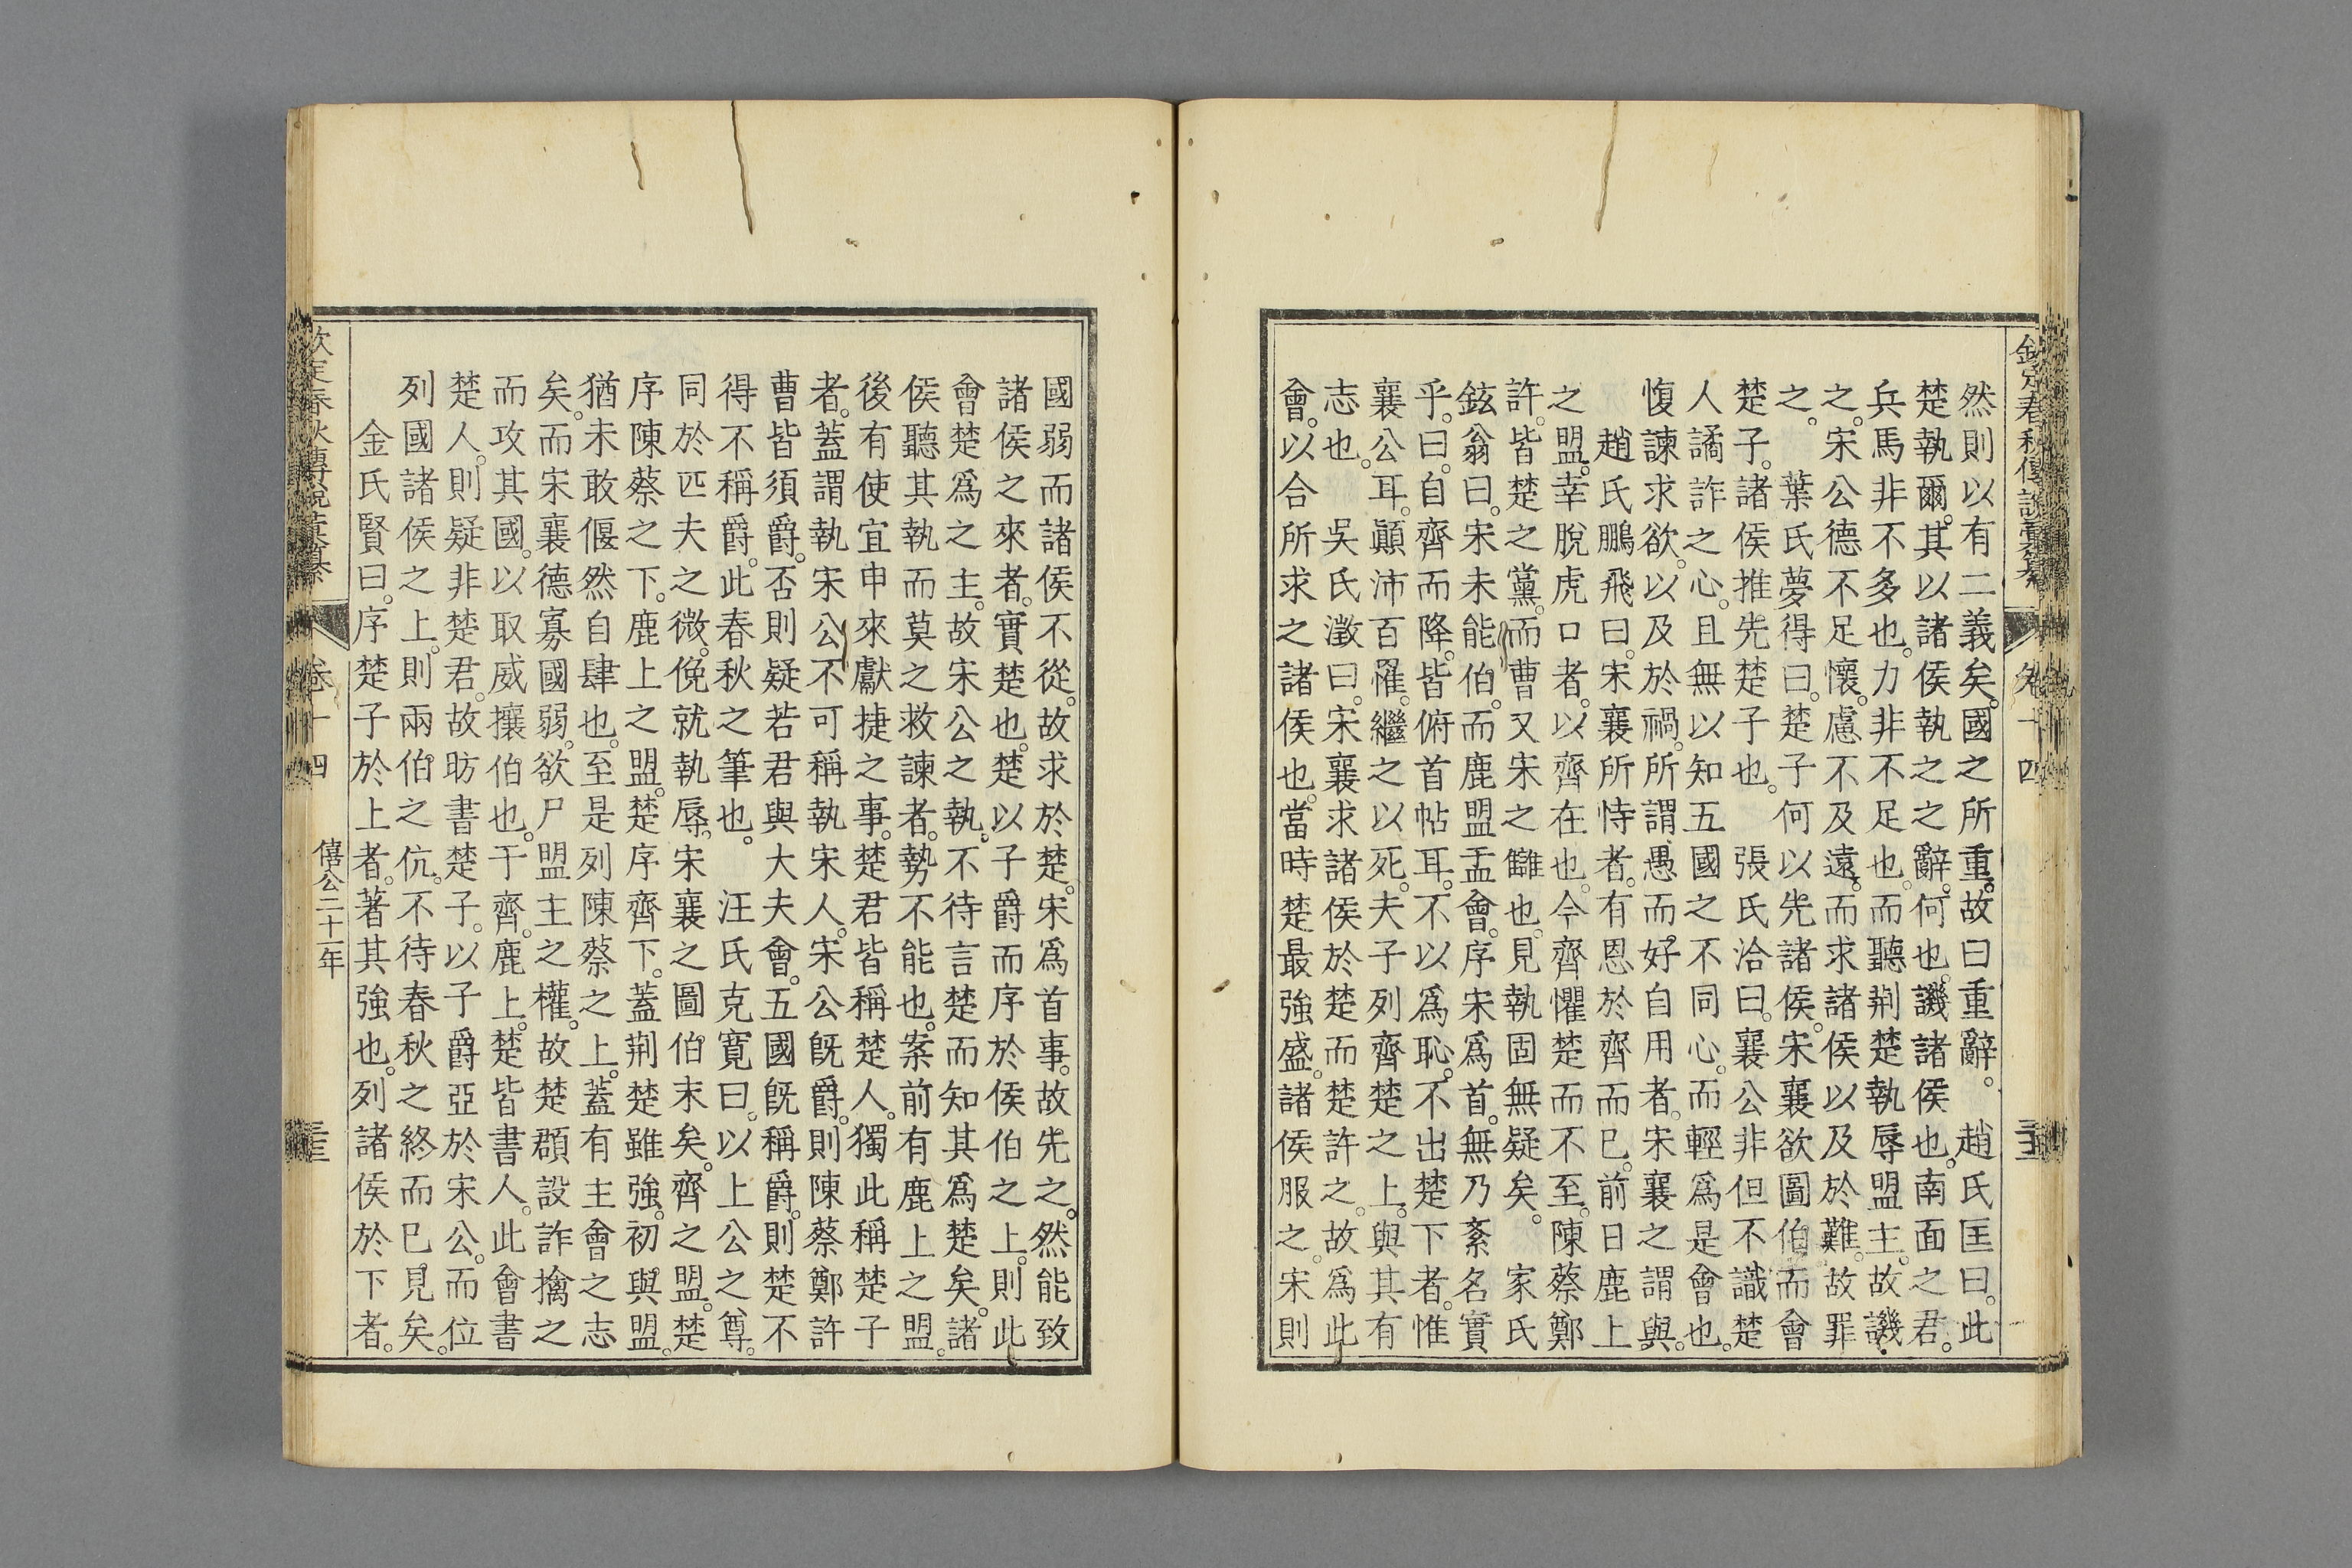 欽定春秋傳說彙纂 卷十四
然則以有二義矣。國之所重。故曰重辭。 趙氏匡曰。此
楚執爾。其以諸侯執之之辭。何也。譏諸侯也。南面之君。
兵馬非不多也。力非不足也。而聽荆楚執辱盟主。故譏
之。宋公德不足懷。慮不及遠。而求諸侯以及於難。故罪
之。 葉氏夢得曰。楚子何以先諸侯。宋襄欲圖伯而會
楚子。諸侯推先楚子也。 張氏洽曰。襄公非但不識楚
人譎詐之心。且無以知五國之不同心。而輕爲是會也。
愎諫求欲。以及於禍。所謂愚而好自用者。宋襄之謂與。
趙氏鵬飛曰。宋襄所恃者。有恩於齊而已。前日鹿上
之盟。幸脫虎口者。以齊在也。今齊懼楚而不至。陳蔡鄭
許。皆楚之黨。而曹又宋之讎也。見執固無疑矣。 家氏
鉉翁曰。宋未能伯。而鹿盟盂會。序宋爲首。無乃紊名實
乎。曰。自齊而降。皆俯首帖耳。不以爲恥。不出楚下者。惟
襄公耳。顚沛百罹。繼之以死。夫子列齊楚之上。與其有
志也。 吳氏澂曰。宋襄求諸侯於楚。而楚許之。故爲此
會。以合所求之諸侯也。當時楚最強盛。諸侯服之。宋則
國弱而諸侯不從。故求於楚。宋爲首事。故先之。然能致
諸侯之來者。實楚也。楚以子爵而序於侯伯之上。則此
會楚爲之主。故宋公之執。不待言楚而知其爲楚矣。諸
侯聽其執而莫之救諫者。勢不能也。案前有鹿上之盟。
後有使宜申來獻捷之事。楚君皆稱楚人。獨此稱楚子
者。蓋謂執宋公。不可稱執宋人。宋公旣爵。則陳蔡鄭許
曹皆須爵。否則疑若君與大夫會。五國旣稱爵。則楚不
得不稱爵。此春秋之筆也。 汪氏克寬曰。以上公之尊。
同於匹夫之微。俛就執辱。宋襄之圖伯末矣。齊之盟。楚
序陳蔡之下。鹿上之盟。楚序齊下。蓋荆楚雖強。初與盟。
猶未敢偃然自肆也。至是列陳蔡之上。蓋有主會之志
矣。而宋襄德寡國弱。欲尸盟主之權。故楚頵設詐擒之
而攻其國。以取威攘伯也。于齊。鹿上。楚皆書人。此會書
楚人。則疑非楚君。故昉書楚子。以子爵亞於宋公。而位
列國諸侯之上。則兩伯之伉。不待春秋之終而已見矣。
金氏賢曰。序楚子於上者。著其強也。列諸侯於下者。
欽定春秋傳說彙纂 卷十四 僖公二十一年